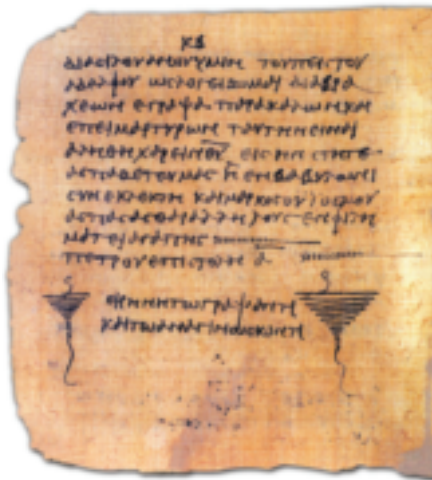 κβ
διασιλουανουυμιν τουπειστου
αδελφου ωςλογειζομαι διαβρα
χεων εγραψα παρακαλωνκαι
επειμαρτυρων ταυτηνειναι
αληθη χαρειν θυ εις ην στητε
ασπαζετουμας η ενβαβυλωνι
συνεκλεκτη καιμαρκοσουιοσμου
ασπασασθαιαλληλους ενφιλη
ματειαγαπης
πετρουεπιστολη α
ειρηνητωγραψαντι
καιτωαναγινωσκοντι